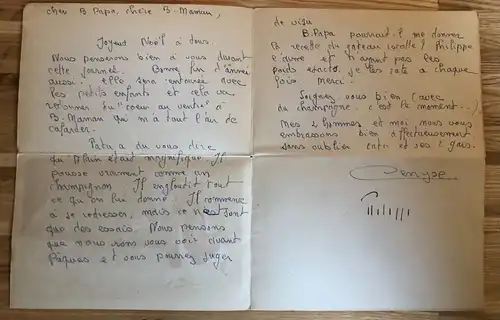 cher B. Papa, chère B. Maman,
Joyeux Noël à tous.
Nous penserons bien à vous durant
cette journée. Bonne fin d'année
aussi. Elle sera entourée avec
les petits enfants et cela va
redonner du "coeur au ventre" à
B. Maman qui m'a tout l'air de
cafarder.
Pata a du vous dire
qu'Alain était magnifique. Il
pousse vraiment comme un
champignon. Il engloutit tout
ce qu'on lui donne. Il commence
à se redresser, mais ce sont
que des essais. Nous pensons
que nous irons vous voir avant
Pâques et vous pourrez juger
de visu
B. Papa pourrait-il me donner
la recette du gateau Philippe
et n'ayant pas les
poids exacts, je les rate à chaque
fois merci.
Soignez vous bien (avec
du champagne, c'est le moment...)
Mes 2 hommes et moi nous vous
embrassons bien affectueusement
sans oublier et ses 2 gars.